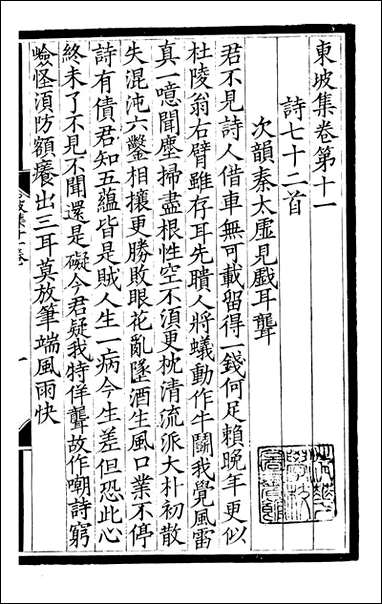 東坡集卷第十一
詩七十二首
次韻秦太虛見戲耳聾
君不見詩人借車無可載留得一錢何足賴晚年更似
杜陵翁右臂雖存耳先聵人將蟻動作牛鬭我覺風雷
真一噫聞塵掃盡根性空不須更枕清流派大朴初散
失混沌六鑿相攘更勝敗眼花亂墜酒生風口業不停
詩有債君知五蘊皆是賊人生一病今生差但恐此心
終未了不見不聞還是礙今君疑我特佯聾故作嘲詩窮
嶮怪須防額癢出三耳莫放筆端風雨快